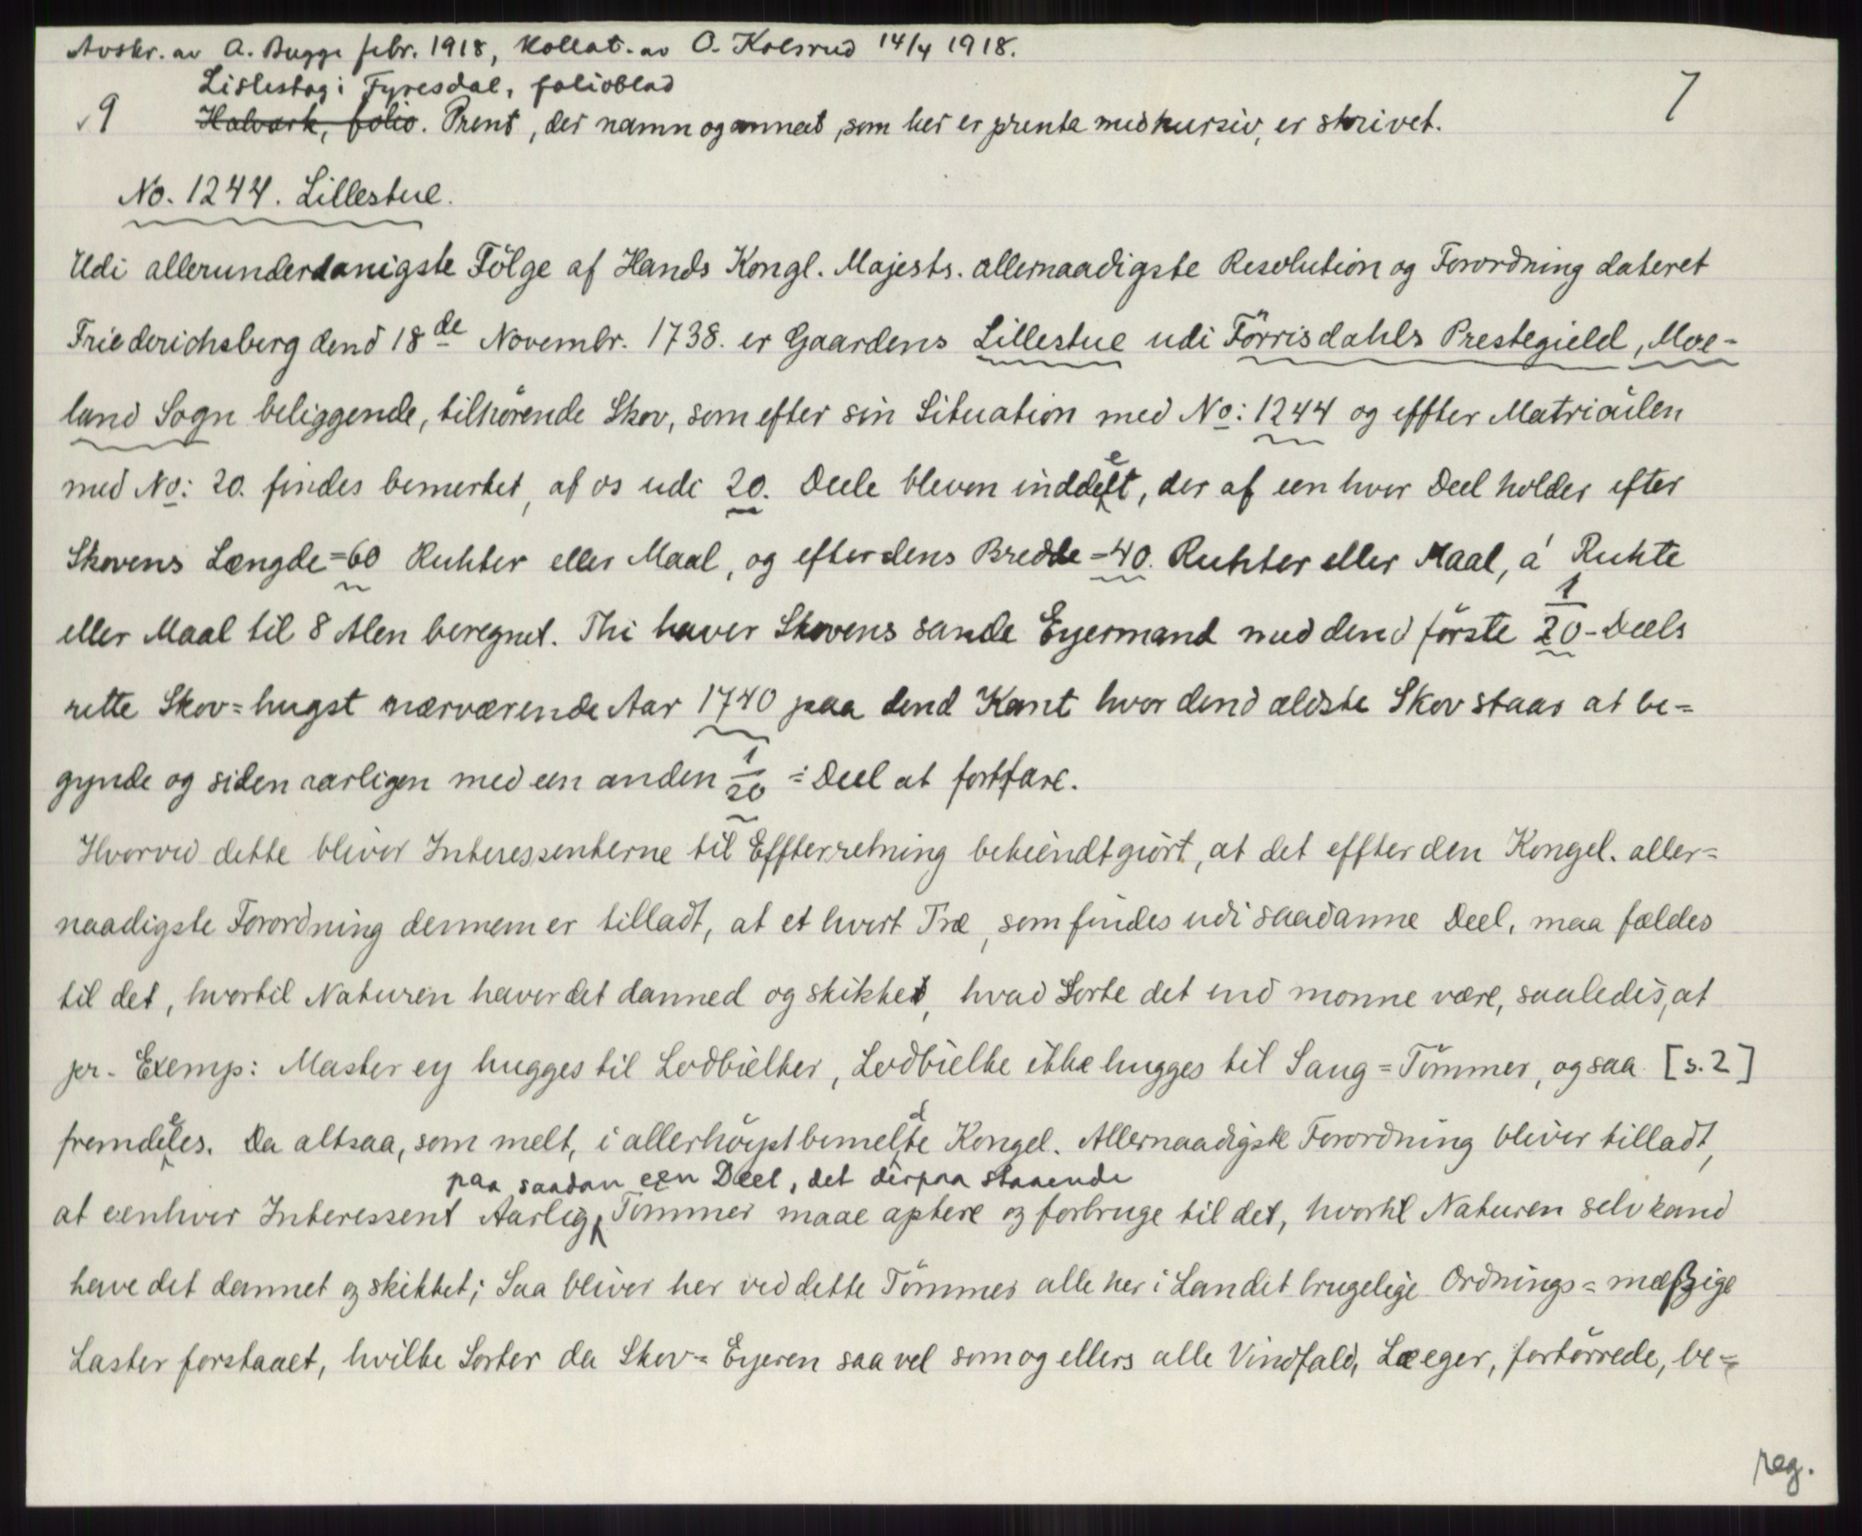 Avskr. av A. Bugge febr. 1918, Kollat. av O. Kolsrud 14/4 1918.
Lislestog i Tyresdal, folioblad
7
9 Halvark, folio. Prent, der namn og annat, som her er prenta med kursiv, er skrivet.
No. 1244. Lillestue.
Udi allerunderdanigste Fölge af Hands Kongl. Majests. allernaadigste Resolution og Forordning dateret
Friederichsberg dend 18de Novembr. 1738. er Gaardens Lillestue udi Förrisdahls Prestegield, Moe-
land Sogn beliggende, tilhörende Skov, som efter sin Situation med No: 1244 og effter Matriculen
med No: 20. findes bemerket, af os udi 20. Deele bleven inddeelt, der af een hver Deel holder efter
Skovens Længde =60 Ruhter eller Maal, og efter dens Bredde =40. Ruhter eller Maal, á Ruhte
eller Maal til 8 Alen beregnet. Thi haver Skovens sande Eyermand med dend förste 1/20-Deels
rette Skov=hugst nærværende Aar 1740 paa dend Kant hvor dend ældste Skov staar at be=
gynde og siden aarligen med een anden 1/20 =Deel at fortfare.
Hvorved dette bliver Interessenterne til Effterretning bekiendtgiört, at det effter den Kongel. aller=
naadigste Forordning dennem er tilladt, at et hvert Træ, som findes udi saadanne Deel, maa fældes
til det, hvortil Naturen haver det danned og skikket, hvad Sorte det end monne være, saaledes, at
pr. Exemp: Master ey hugges til Lodbielker, Lodbielke ikke hugges til Saug=Tömmer, og saa [s. 2]
fremdeeles. Da altsaa, som melt, i allerhöystbemeldte Kongel. Allernaadigste Forordning bliver tilladt,
paa saadan een Deel, det derpaa staaende
at eenhver Interessent Aarlig Tömmer maae aptere og forbruge til det, hvortil Naturen selv kand
have det dannet og skikket; Saa bliver her ved dette Tömmer alle her i Landet brugelige Ordnings=mæßige
Laster forstaaet, hvilke Sorter da Skov=Eyeren saavel som og ellers alle Vindfald, Læger, fortörrede, be=
reg.